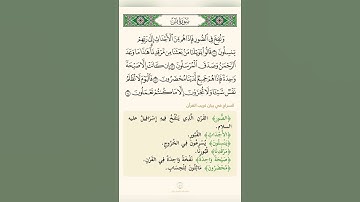 سورة يس
وَنُفِخَ فِي ٱلصُّورِ فَإِذَا هُم مِّنَ ٱلۡأَجۡدَاثِ إِلَىٰ رَبِّهِمۡ
يَنسِلُونَ ۝ قَالُواْ يَٰوَيۡلَنَا مَنۢ بَعَثَنَا مِن مَّرۡقَدِنَاۗ هَٰذَا مَا وَعَدَ
ٱلرَّحۡمَٰنُ وَصَدَقَ ٱلۡمُرۡسَلُونَ ۝ إِن كَانَتۡ إِلَّا صَيۡحَةٗ
وَٰحِدَةٗ فَإِذَا هُمۡ جَمِيعٞ لَّدَيۡنَا مُحۡضَرُونَ ۝ فَٱلۡيَوۡمَ لَا تُظۡلَمُ
نَفۡسٞ شَيۡـٔٗا وَلَا تُجۡزَوۡنَ إِلَّا مَا كُنتُمۡ تَعۡمَلُونَ ۝
السراج في بيان غريب القرآن
﴿الصُّورِ﴾ القَرْنِ الَّذِي يَنْفُخُ فِيهِ إِسْرَافِيلُ عليه
السلام.
﴿الْأَجْدَاثِ﴾ القُبُورِ.
﴿يَنسِلُونَ﴾ يُسْرِعُونَ فِي الخُرُوجِ.
﴿مَرْقَدِنَا﴾ قُبُورِنَا.
﴿صَيْحَةً وَاحِدَةً﴾ نَفْخَةً وَاحِدَةً فِي القَرْنِ.
﴿مُحْضَرُونَ﴾ مَاثِلُونَ لِلْحِسَابِ.